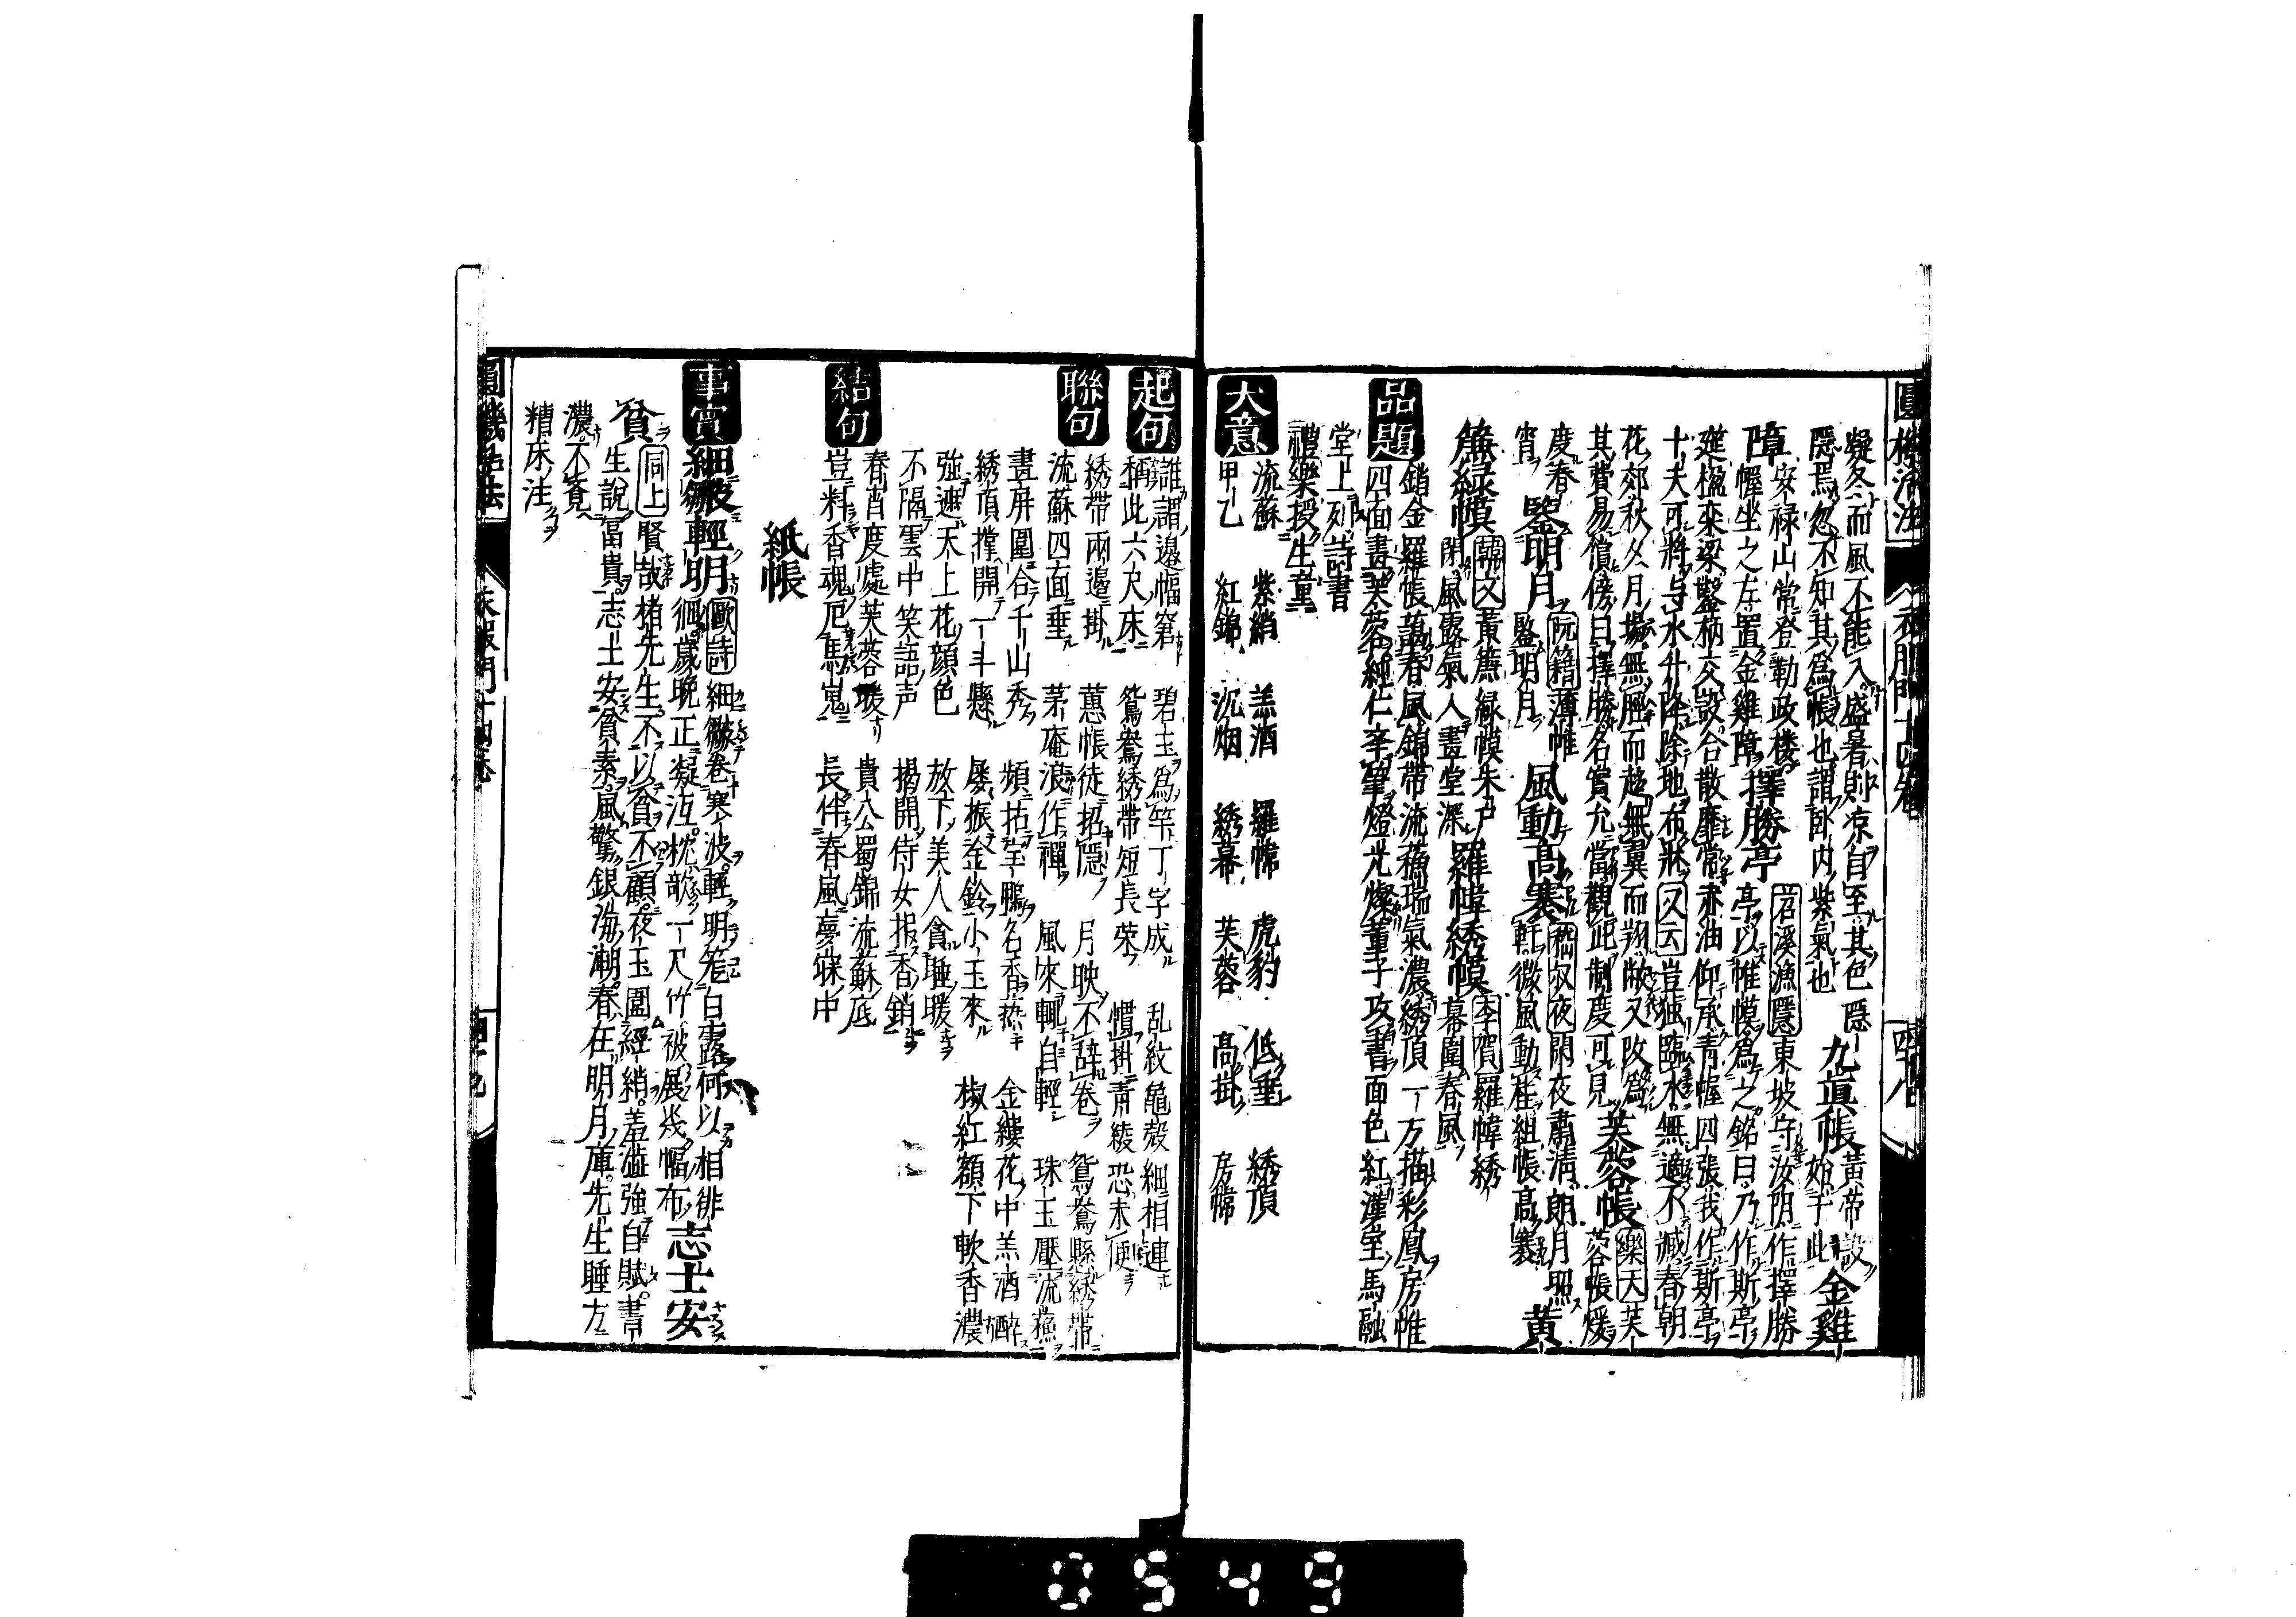 圓機活法
衣服門十四卷
四十八
凝冬而風不能入盛暑則凉自至其色隱
隱焉忽不知其爲帳也謂卧内紫氣也
九眞帳
黃帝設始于此
金雞
障
安禄山常登勤政樓
幄坐之左置金雞障
擇勝亭
苕溪漁隱
東坡守汝阴作擇勝
亭以帷幙爲之銘曰乃作斯亭
筵楹栾梁鑿枘交設合散靡常赤油仰承青幄四張我作斯亭
十夫可將与水升降除地布牀
又云
豈独臨水無適不臧春朝
花郊秋夕月場無脛而趍無翼而翔敝又改爲
其費易償傍曰擇勝名實允當觀此制度可見
芙蓉帳
樂天
芙蓉帳煖
度春宵
鑒明月
阮籍
薄帷
鑒明月
風動高褰
嵇叔夜
閑夜肅清朗月照
軒微風動袿組帳高褰
黃
簾緑幙
韓文
黃簾緑幙朱户
閉風露氣人晝堂深
羅幃綉幙
李賀
羅幃綉
幕圍春風
品題
銷金羅帳蕩春風錦帶流蘇瑞氣濃綉頂一方描彩鳳房帷
四面畫芙蓉純仁辛筆燈光燦董子攻書面色紅漢室馬融
堂上列詩書
禮樂授生童
大意
流蘇
紫綃
羔酒
羅幃
虎豹
低垂
綉頂
甲乙
紅錦
沉烟
綉幕
芙蓉
高掛
房幃
起句
誰謂邉幅窘
稱此六尺床
碧玉爲竿丁字成
鴛鴦綉帶短長荣
乱紋龜殻細相連
慣掛青綾恐未便
聯句
綉帶兩邉掛
流蘇四面垂
蕙帳徒招隠
茅庵浪作禪
月映不辞卷
風來輒自輕
鴛鴦懸綉帶
珠玉壓流蘇
晝屏圍合千山秀
綉頂撑開一斗懸
頻拈宝鴨名香蓺
屡振金鈴小玉來
金縷花中羔酒醉
椒紅額下軟香濃
強遮天上花顔色
不隔雲中笑語声
放下美人貪睡暖
揭開侍女报香銷
結句
春宵度處芙蓉暖
豈料香魂厄馬嵬
貴公蜀錦流蘇底
長伴春風夢寐中
紙帳
事實
細皺輕明
歐詩
細皺卷寒波輕明籠白露何以相徘
徊歳晚正凝沍枕歌一尺竹被展幾幅布
志士安
貧
同上
賢哉楮先生不以貧不顧夜玉圍經綃羞澁強自賦書
生說富貴志士安貧素風驚銀海潮春在明月庫先生睡方
濃不覚
糟床注
圓機活法
衣服門十四卷
四十九
0549